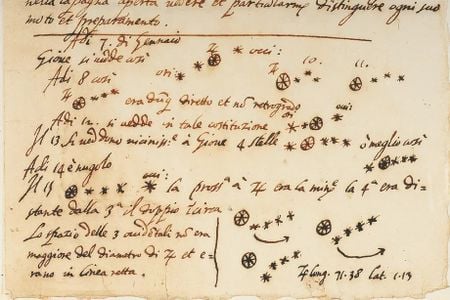 nella pagina aperta vedere et particolarmᵉ distinguere ogni suo
moto et preparamento.
Adi 7. di Gennaio
Gione si vedde così ♃ occi:
Adi 8 così ori: 10. 11.
♃ era dūq diretto et nō retrogrado
Adi 12. si vedde in tale costituzione ori occi
Il 13 si veddono vicinissᵉ à Gione 4 stelle ò meglio così
Adi 14 è nugolo
Il 15 occi la prossᵃ à ♃ era la minᵉ la 4ᵃ era di-
stante dalla 3ᵃ il doppio circa
Lo spazio delle 3 occidētali nō era
maggiore del diametro di ♃ et e-
rano in linea retta.
♃ long. 71.38 Lat. 1.13